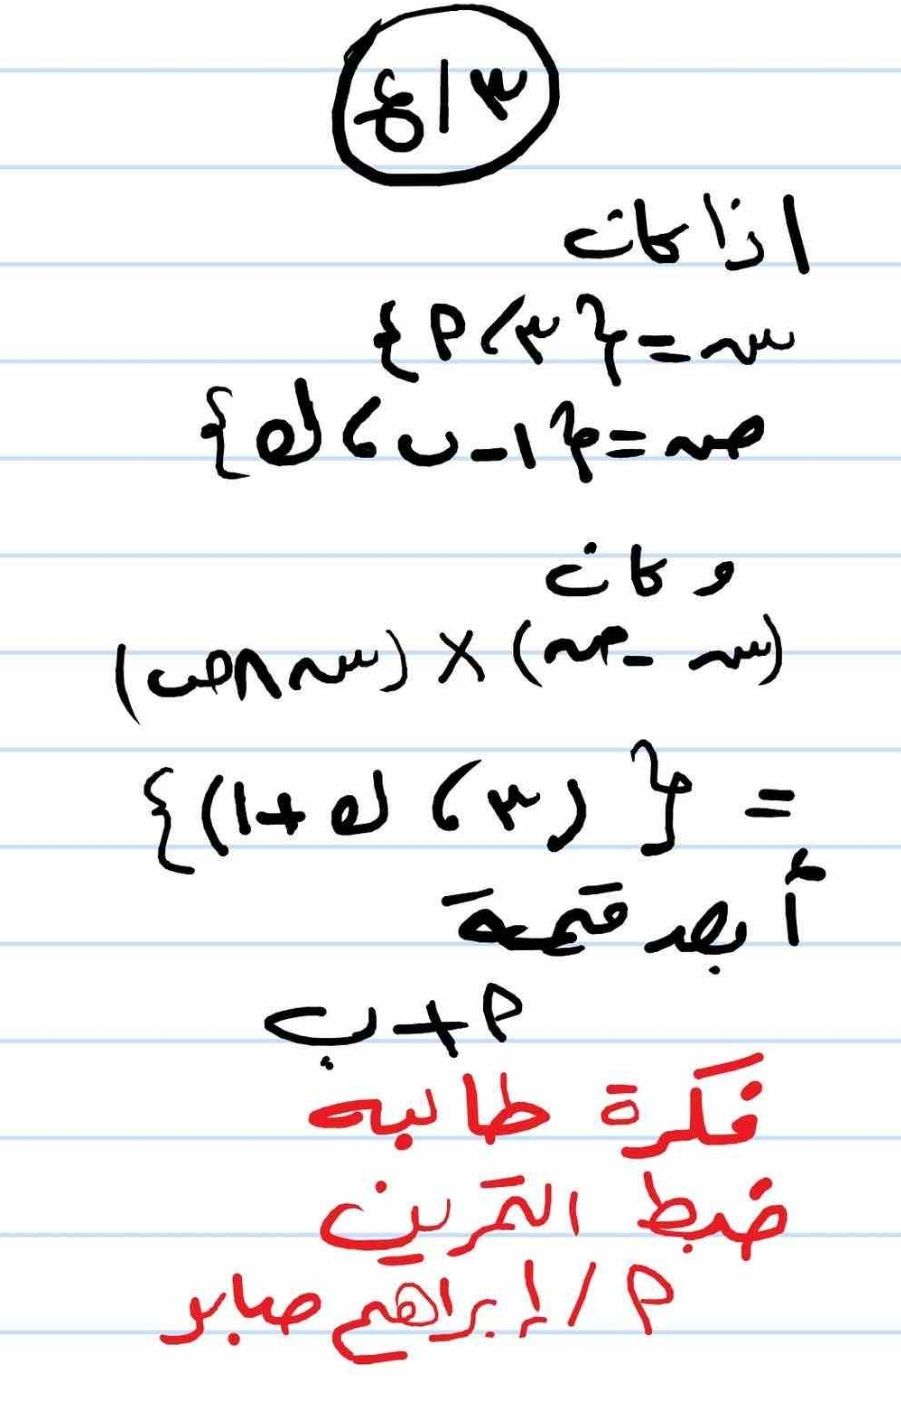 ٣/ع
اذا كانت
س = {٣، م}
ص = {١ - ب، ك}
و كان
(س - ص) × (س ∩ ص)
= {(٣، ك + ١)}
أوجد قيمة
م + ب
فكرة طالبه
ضبط التمرين
م/إبراهيم صابر